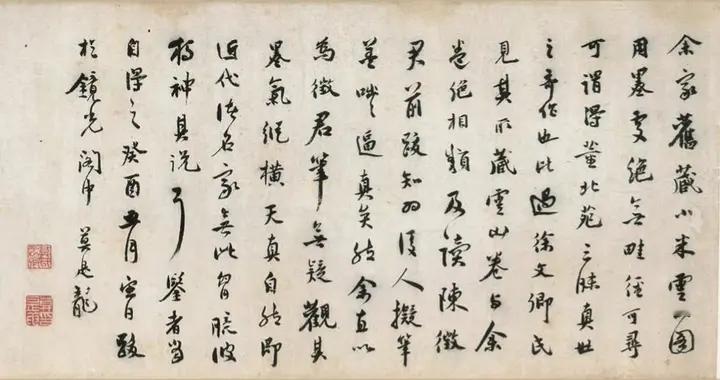 余家舊藏小米雲山圖
用墨變絕無畦徑可尋
可謂得董北苑三昧真世
之奇作也此過徐文卿氏
見其所藏雲山卷與余
卷絕相類及讀陳徵
君前跋知為後人擬筆
蓋咄咄逼真矣然余直以
為徵君筆無疑觀其
墨氣縱橫天真自然即
近代諸名家無此胸臆彼
特神其說耳鑒者當
自得之癸酉五月望日跋
於鏡光閣中莫是龍